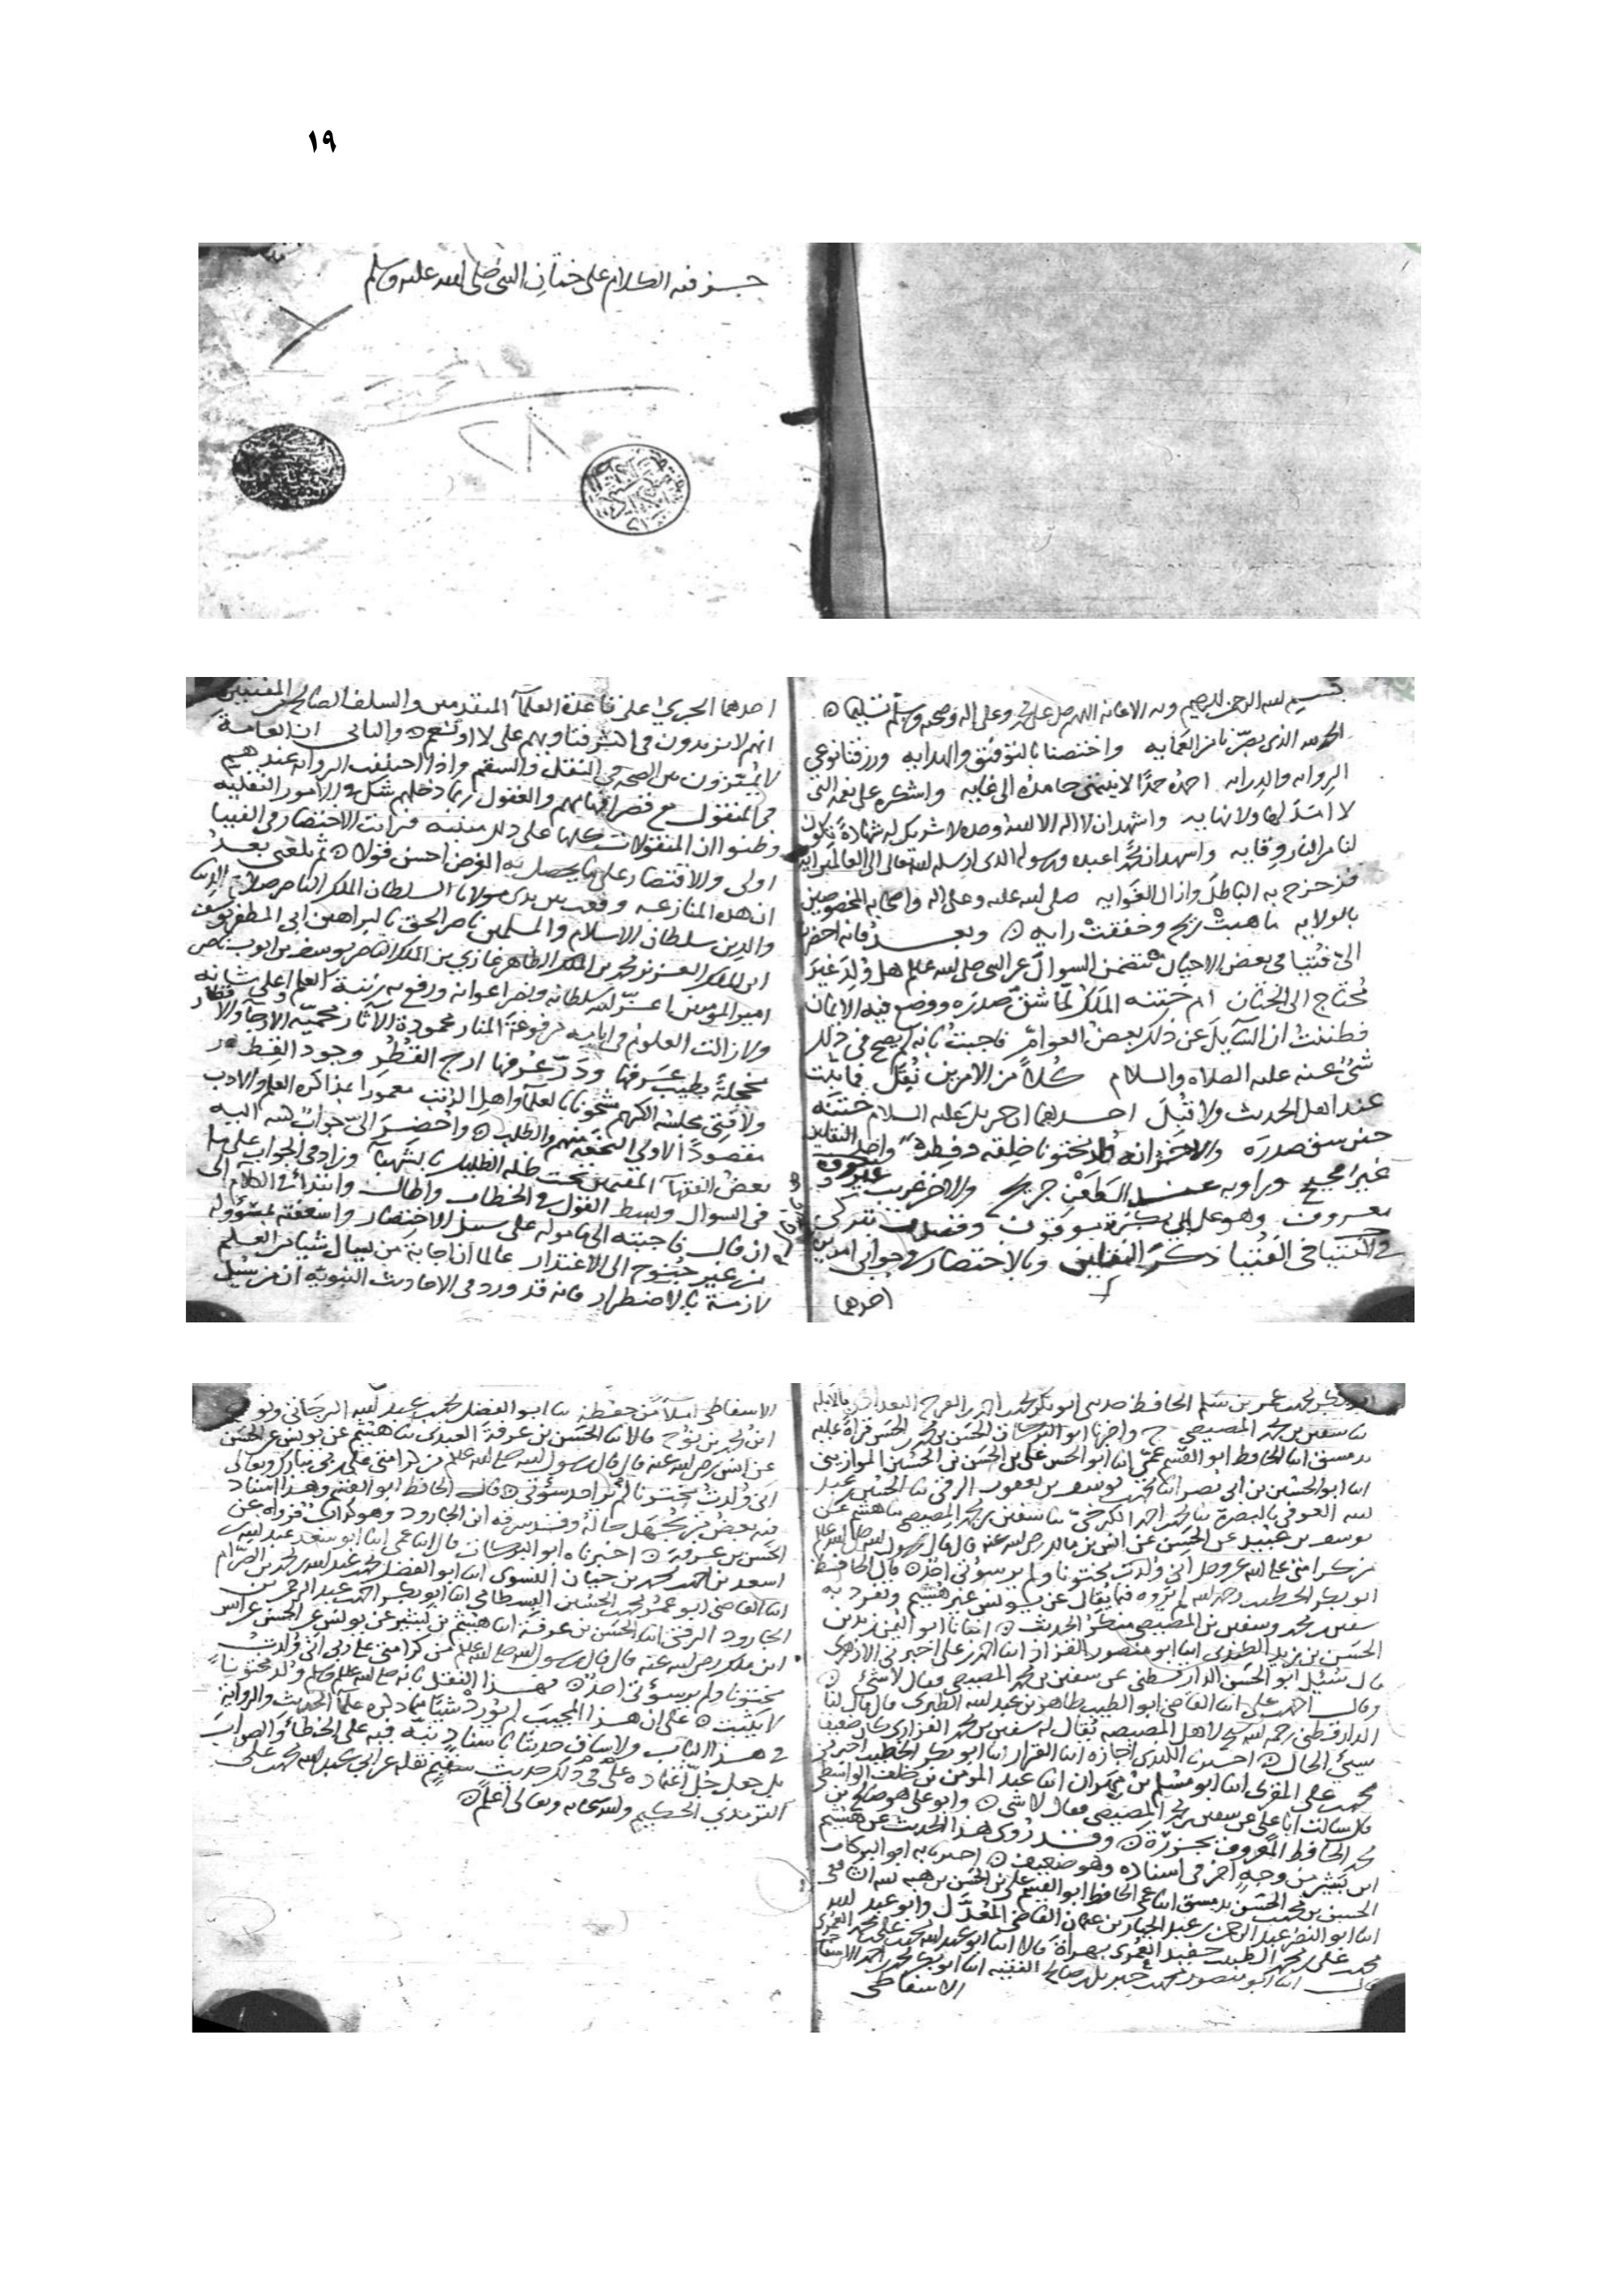 ١٩
جزء فيه الكلام على ختان النبي صلى الله عليه وسلم
٢٨
بسم الله الرحمن الرحيم وبه الاعانه اللهم صل على محمد وعلى اله وصحبه وسلم تسليما
الحمد لله الذي بصرنا من العمايه واختصنا بالتوفيق والهدايه ورزقنا نوعي
الروايه والدرايه احمده حمدا لا ينتهي حامده الى غايه واشكره على نعمه التي
لا امد لها ولا نهايه واشهد ان لا اله الا الله وحده لا شريك له شهادة تكون
لنا من النار وقايه واشهد ان محمدا عبده ورسوله الذي ارسله الله تعالى الى العالمين ايه
فزحزح به الباطل وازال الغوايه صلى الله عليه وعلى اله واصحابه المخصوصين
بالولايه ما هبت ريح وخفقت رايه وبعد فانه احضر
الي فتيا في بعض الاحيان تتضمن السوال عن النبي صلى الله عليه وسلم هل ولد غير
محتاج الى الختان ام ختنه الملك لما شق صدره ووضع فيه الايمان
فظننت ان السايل عن ذلك بعض العوام فاجبت بانه لم يصح في ذلك
شيء عنه عليه الصلاه والسلام كلا من الامرين نقل فما ثبت
عند اهل الحديث ولا قبل احدهما ان جبريل عليه السلام ختنه
حين شق صدره والاخر انه ولد مختونا خلقه وفطره واحد النقلين
غير صحيح وراويه عند الطعن جريح والاخر غريب غير
معروف وهو على ابي بكرة موقوف وقصدت بتركي
في الفتيا ذكر النقلين وبالاختصار في جوابي امرين
احدهما
احدهما الجري على قاعدة العلما المتقدمين والسلف الصالح من المفتيين
انهم لا يزيدون في اكثر فتاويهم على لا او نعم والثاني ان العامة
لا يميزون بين الصحه في النقل والسقم واذا اختلفت الروايه عندهم
في المنقول مع قصر افهامهم والعقول ربما دخلهم شك في الامور النقليه
وظنوا ان المنقولات كلها على ذلك مبنيه فرايت الاختصار في الفتيا
اولى والاقتصار على ما يحصل به الغرض احسن قولا ثم بلغني بعد
ان هذه المنازعه وقعت بين يدي مولانا السلطان الملك الناصر صلاح الدنيا
والدين سلطان الاسلام والمسلمين ناصر الحق بالبراهين ابي المظفر يوسف
ابن الملك العزيز محمد بن الملك الظاهر غازي بن الملك الناصر يوسف بن ايوب ناصر
امير المومنين اعز الله سلطانه ونصر اعوانه ورفع به رتبة العلم واعلى شانه
ولا زالت العلوم في ايامه مرفوعة المنار محمودة الاثار محميه الارجاء والاقطار
مخجلة بطيب عرفها ودر عرفها ارج القطر وجود القطر
ولا فتئ مجلسه الكريم مشحونا بالعلما واهل الرتب معمورا بمذاكرة العلم والادب
مقصودا لاولي التحقيق منهم والطلب واحضر الي جواب كتبه اليه
بعض الفقها المقيمين تحت ظله الظليل بالشهبا وزاد في الجواب على ما
في السوال وبسط القول في الخطاب واطال وابتدا في الكلام الى
ان قال فاجبته الى ماموله على سبيل الاختصار واسعفته بمسؤوله
من غير جنوح الى الاعتذار عالما ان اجابة من يسال شيئا من العلم
لازمة بالاضطرار فانه قد ورد في الاحاديث النبويه ان من سئل
ابو بكر محمد بن عمر بن سلم الحافظ حدثني ابو بكر محمد بن احمد بن الفرج البغدادي بالابله
نا سفين بن محمد المصيصي ح واخبرنا ابو البركات الحسن بن محمد بن الحسن قراة عليه
بدمشق انا الحافظ ابو القسم عمي انا ابو الحسن علي بن الحسن بن الحسين الموازيني
انا ابو الحسين بن ابي نصر انا محمد بن يوسف بن يعقوب الرقي نا الحسين بن عبد
الله العوفي بالبصرة نا محمد بن احمد الكرخي نا سفين بن محمد المصيصي نا هشيم عن
يونس بن عبيد عن الحسن عن انس بن مالك رضي الله عنه قال قال رسول الله صلى الله عليه وسلم
من كرامتي على الله عز وجل اني ولدت مختونا ولم ير سوءتي احد قال الحافظ
ابو بكر الخطيب رحمه الله لم يروه فيما يقال عن يونس غير هشيم وتفرد به
سفين بن محمد وسفين بن محمد المصيصي منكر الحديث انبانا ابو اليمن زيد بن
الحسن بن زيد الكندي انا ابو منصور القزاز انا احمد بن علي اخبرني الازهري
قال سئل ابو الحسن الدارقطني عن سفين بن محمد المصيصي فقال لا شيء
وقال احمد بن علي انا القاضي ابو الطيب طاهر بن عبد الله الطبري قال قال لنا
الدارقطني رحمه الله شيخ لاهل المصيصه يقال له سفين بن محمد الفزاري كان ضعيفا
سيئ الحال اخبرنا الكندي اجازه انا القزاز انا ابو بكر الخطيب اخبرني
محمد بن علي المقرئ انا ابو مسلم بن مهران انا عبد المومن بن خلف
قال سالت ابا علي عن سفين بن محمد المصيصي فقال لا شيء وابو علي هو صالح بن
محمد الحافظ المعروف بجزرة وقد روي هذا الحديث عن هشيم
ابن بشير من وجه اخر في اسناده وهو ضعيف اخبرنا به ابو البركات
الحسن بن محمد بن الحسن بدمشق انا عمي الحافظ ابو القسم علي بن الحسن بن هبه الله الشافعي
انا ابو النضر عبد الرحمن بن عبد الجبار بن عثمان القاضي المعدل وابو عبد الله
محمد بن علي بن محمد الطبيب حفيد العمري بهراة قالا انا ابو عبد الله محمد بن علي بن محمد العمري
قال انا ابو منصور محمد بن جبريل بن صالح الفقيه انا ابو بكر محمد بن احمد
الاسفاطي
الاسفاطي املاء من حفظه نا ابو الفضل محمد بن عبد الله المرجاني ونوح
ابن محمد بن نوح قالا نا الحسن بن عرفة العبدي نا هشيم عن يونس عن الحسن
عن انس رضي الله عنه قال قال رسول الله صلى الله عليه وسلم من كرامتي على ربي تبارك وتعالى
اني ولدت مختونا لم ير احد سوءتي قال الحافظ ابو القسم وهذا اسناد
فيه بعض من يجهل حاله وقد سرقه ابن الجارود وهو كذاب فرواه عن
الحسن بن عرفة اخبرناه ابو البركات قال انا عمي انا ابو سعد عبد الله بن
اسعد بن احمد بن محمد بن حيان النسوي انا ابو الفضل محمد بن عبد الله بن محمد بن الصرام
انا القاضي ابو عمر محمد بن الحسين البسطامي انا ابو بكر احمد بن عبد الرحمن بن
الجارود الرقي انا الحسن بن عرفة انا هشيم بن بشير عن يونس عن الحسن عن انس
ابن مالك رضي الله عنه قال قال رسول الله صلى الله عليه وسلم من كرامتي على ربي اني ولدت
مختونا ولم ير سوءتي احد فهذا النقل بانه صلى الله عليه وسلم ولد مختونا
لا يثبت على ان هذا المجيب لم يورد شيئا مما ذكره علما الحديث والرواية
في هذا الباب ولا ساق حديثا باسناد ينبه فيه على الخطا والصواب
بل جعل جل اعتماده على في ذلك حديث سقيم نقله عن ابي عبد الله محمد بن علي
الترمذي الحكيم والله سبحانه وتعالى اعلم